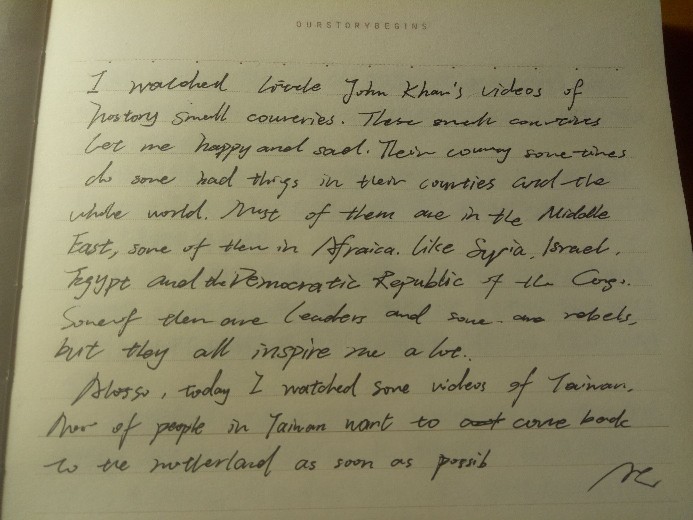 OURSTORYBEGINS
I watched little John Khan's videos of
hostory small counries. These small countries
let me happy and sad. Their counay sometimes
do some bad things in their counties and the
whole world. Most of them are in the Middle
East, some of them in Afraica. Like Syria, Israel.
Egypt and the Democratic Republic of the Congo.
Some of them are leaders and some are rebels,
but they all inspire me a lot.
Alosso, today I watched some videos of Taiwan.
of people in Taiwan want to come back
to the motherland as soon as possib